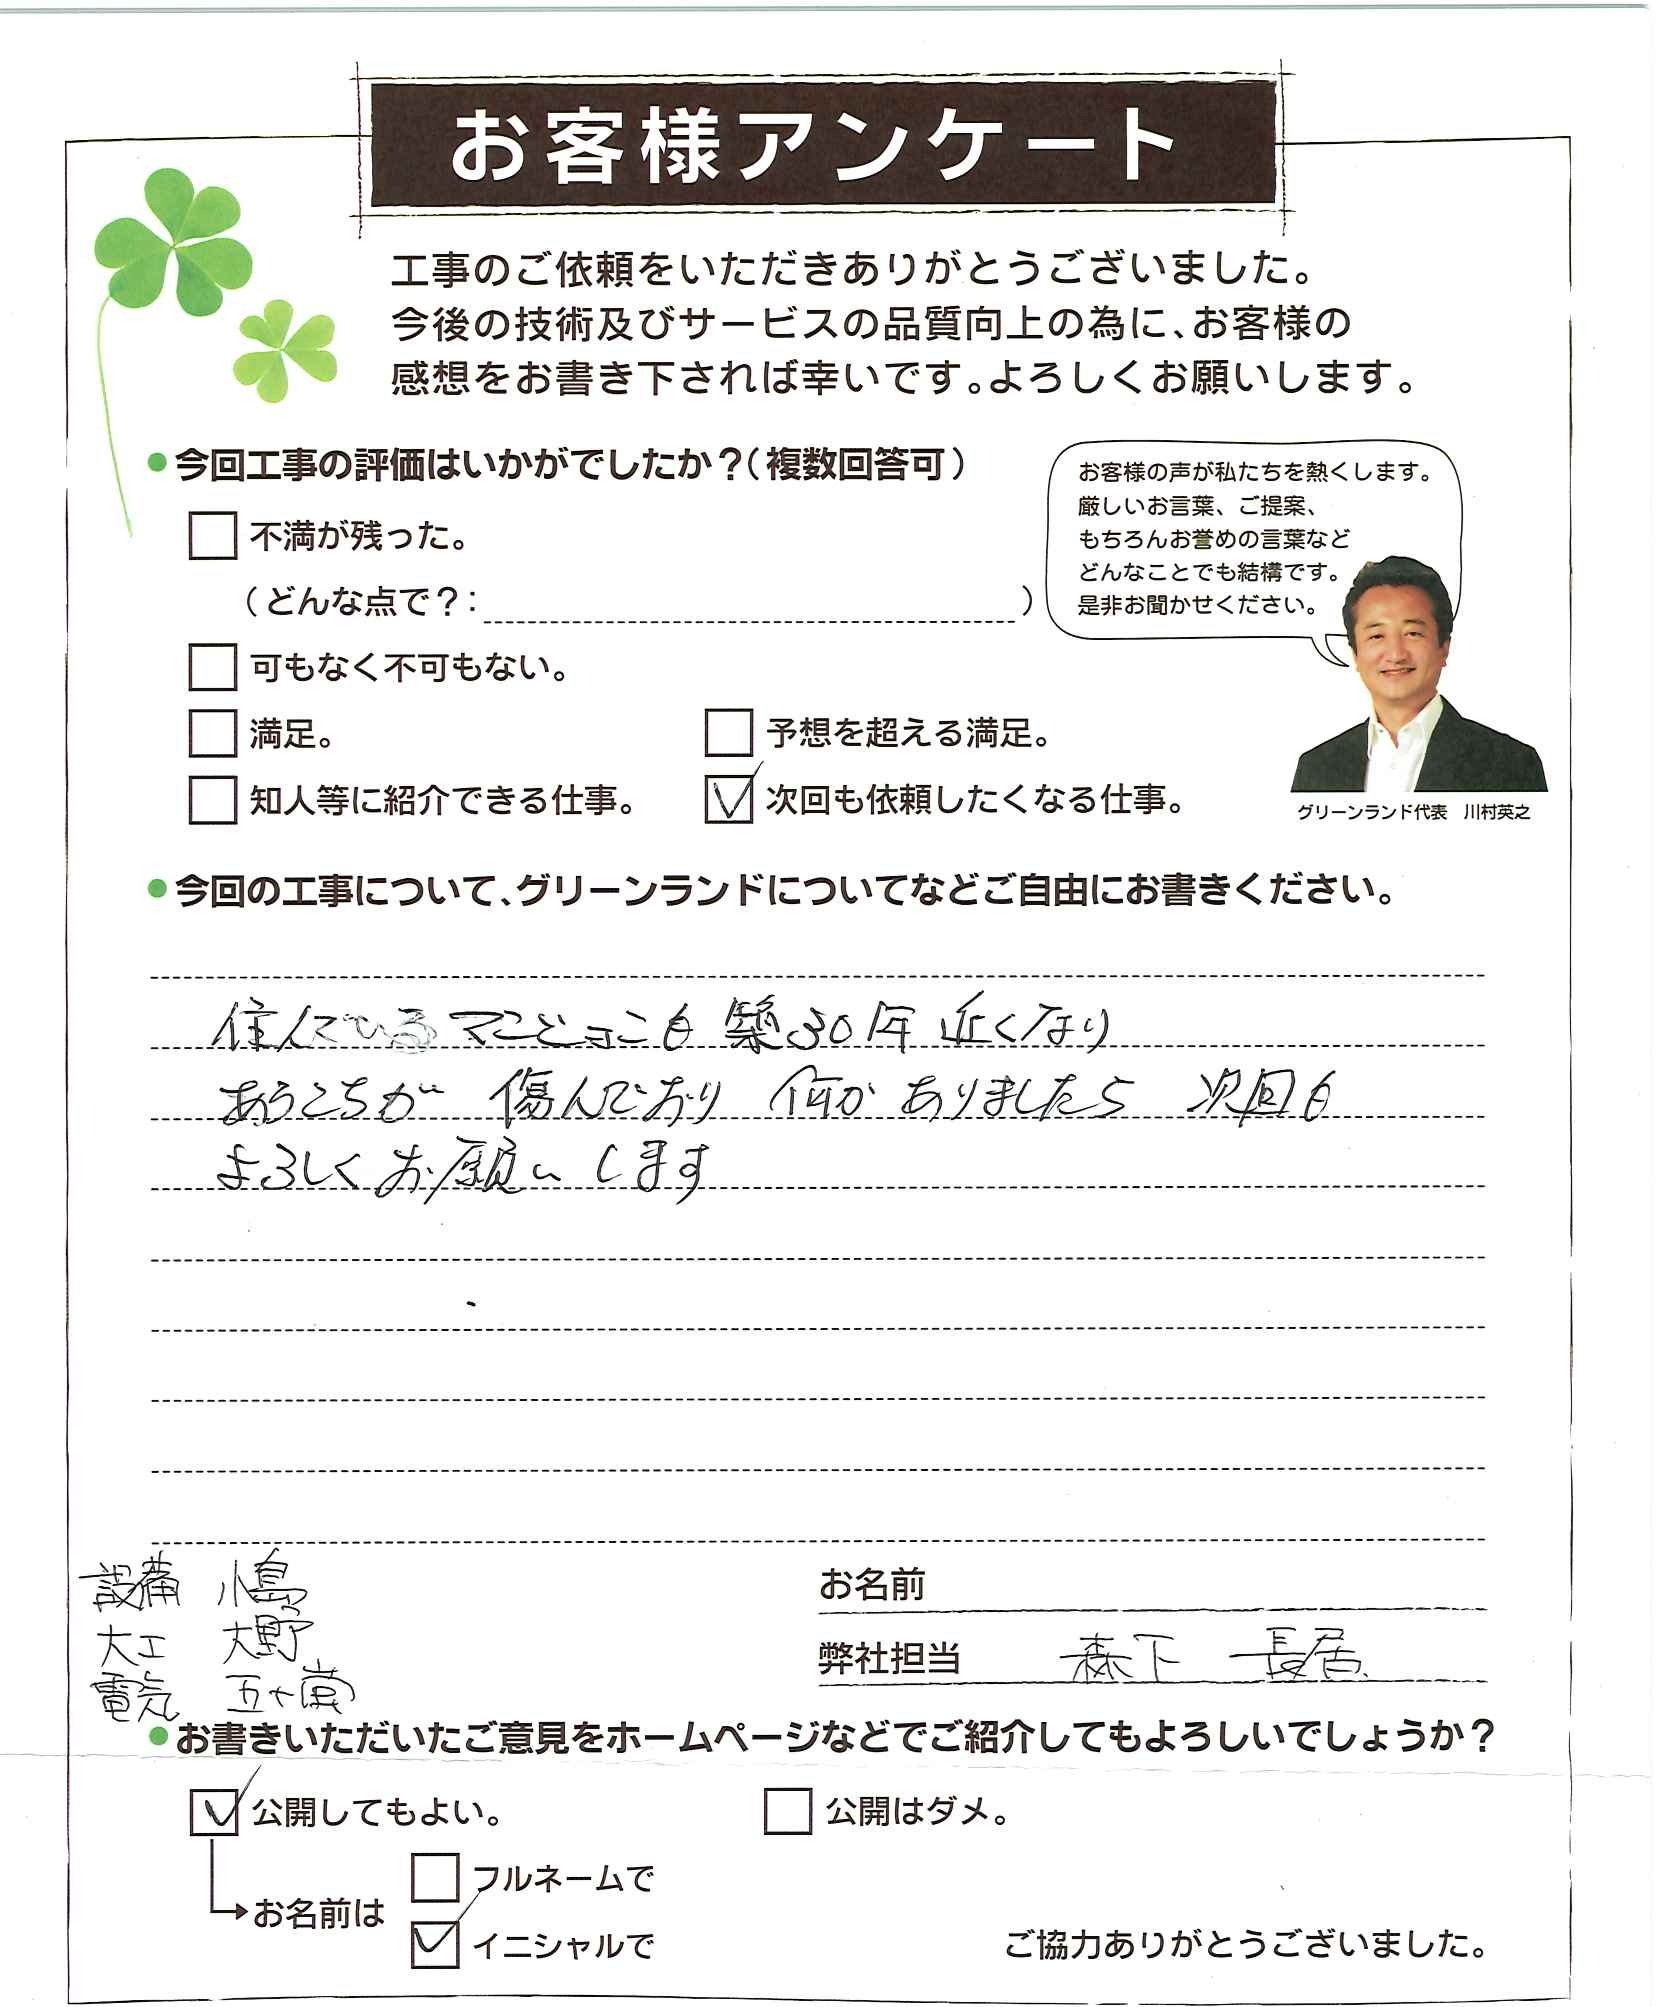 お客様アンケート
工事のご依頼をいただきありがとうございました。
今後の技術及びサービスの品質向上の為に、お客様の
感想をお書き下されば幸いです。よろしくお願いします。
●今回工事の評価はいかがでしたか？（複数回答可）
不満が残った。
（どんな点で？：　）
可もなく不可もない。
満足。
予想を超える満足。
知人等に紹介できる仕事。
次回も依頼したくなる仕事。
お客様の声が私たちを熱くします。
厳しいお言葉、ご提案、
もちろんお誉めの言葉など
どんなことでも結構です。
是非お聞かせください。
グリーンランド代表　川村英之
●今回の工事について、グリーンランドについてなどご自由にお書きください。
住んでいるマンションも 築30年 近くなり
あちこちが 傷んでおり 何か ありましたら 次回も
よろしく お願い します
設備 小島
大工 大野
電気 五十嵐
お名前
弊社担当 森下 長居
●お書きいただいたご意見をホームページなどでご紹介してもよろしいでしょうか？
公開してもよい。
公開はダメ。
お名前は
フルネームで
イニシャルで
ご協力ありがとうございました。